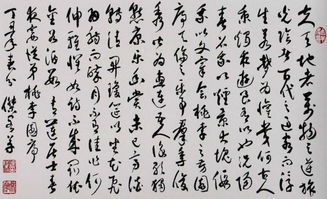 夫天地者萬物之逆旅
光陰者百代之過客而浮
生若夢為懽幾何古人
秉燭夜遊良有以也況陽
春召我以煙景大塊假
我以文章會桃李之芳園
序天倫之樂事群季俊
秀皆為惠連吾人詠歌獨
慚康樂幽賞未已高談
轉清開瓊筵以坐花飛
羽觴而醉月不有佳作何
伸雅懷如詩不成罰依
金谷酒數 青蓮居士春
夜宴從弟桃李園序